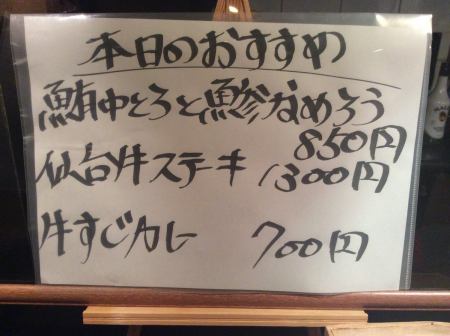 本日のおすすめ
鮪中とろと鯵なめろう
850円
仙台牛ステーキ 1300円
牛すじカレー 700円